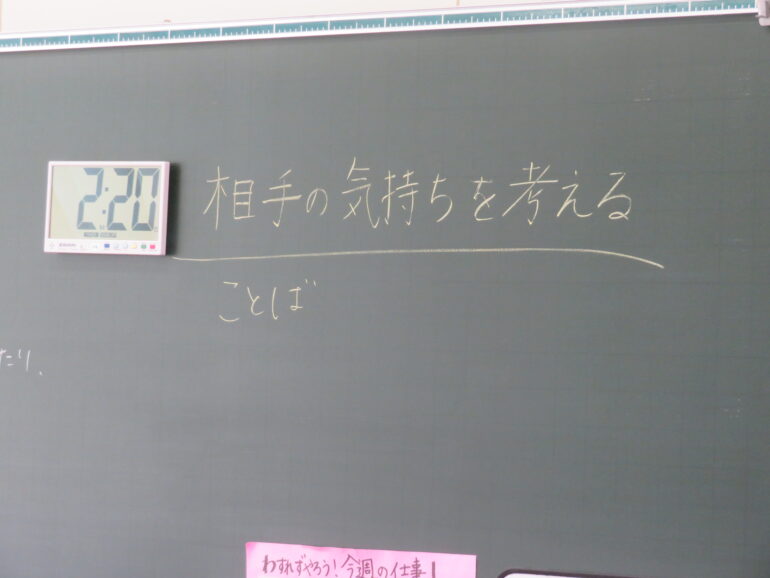 2:20
相手の気持ちを考える
ことば
わすれずやろう!今週の仕事!